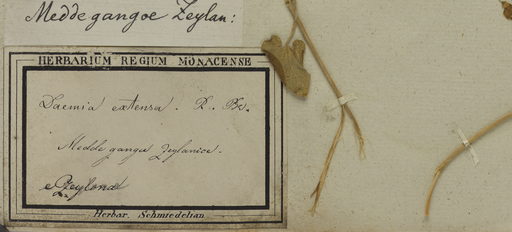 Meddegangoe Zeylan:
HERBARIUM REGIUM MONACENSE
Daemia extensa. R. Br.
Medde gangoe zeylanice.
e Zeylona
Herbar. Schmiedelian